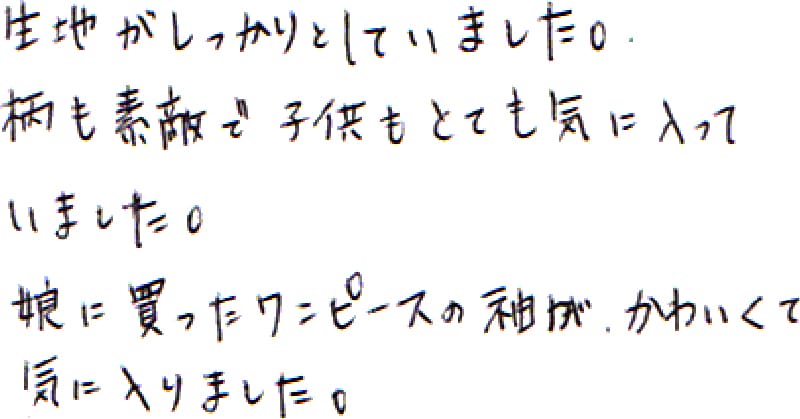 生地がしっかりとしていました。
柄も素敵で子供もとても気に入って
いました。
娘に買ったワンピースの袖が、かわいくて
気に入りました。